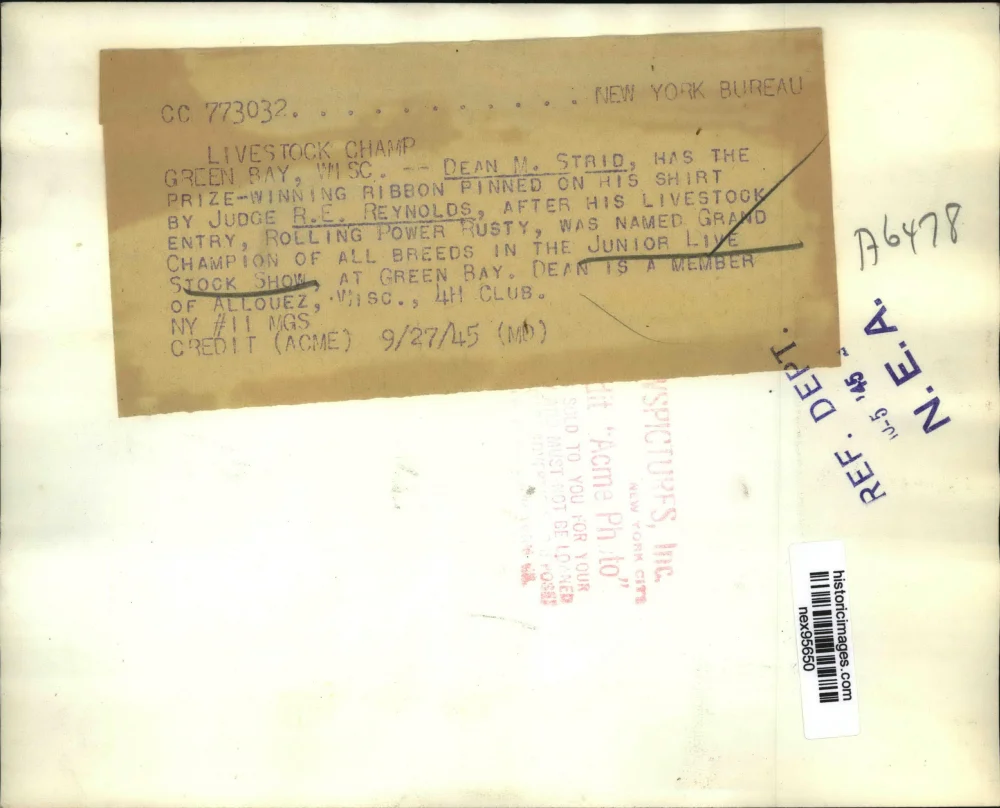 CC 773032. . . . . . . . . . . . NEW YORK BUREAU
LIVESTOCK CHAMP
GREEN BAY, WISC. -- DEAN M. STRID, HAS THE
PRIZE-WINNING RIBBON PINNED ON HIS SHIRT
BY JUDGE R.E. REYNOLDS, AFTER HIS LIVESTOCK
ENTRY, ROLLING POWER RUSTY, WAS NAMED GRAND
CHAMPION OF ALL BREEDS IN THE JUNIOR LIVE
STOCK SHOW AT GREEN BAY. DEAN IS A MEMBER
OF ALLOUEZ, WISC., 4H CLUB.
NY #11 MGS
CREDIT (ACME) 9/27/45 (MD)
A6478
REF. DEPT.
10-5 '45
N.E.A.
NEW YORK CITY
"Acme Photo"
SOLD TO YOU FOR YOUR
MUST NOT BE LOANED
historicimages.com
nex95650